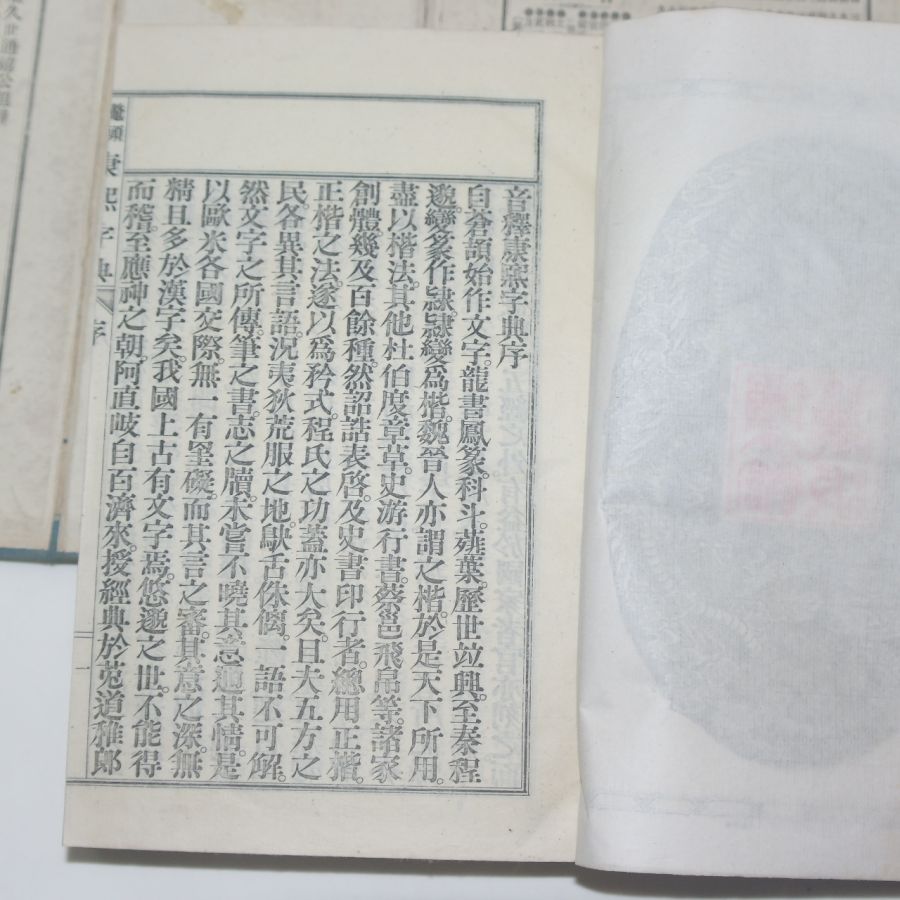 音釋康熙字典序
自蒼頡始作文字。龍書鳳篆。科斗。薤葉。歷世竝興。至秦程
邈。變篆作隷。隷變爲楷。魏晉人亦謂之楷。於是天下所用。
盡以楷法。其他杜伯度章草。史游行書。蔡邕飛帛等。諸家
創體幾及百餘種。然詔誥表啓。及史書印行者。總用正楷。
正楷之法。遂以爲矜式。程氏之功蓋亦大矣。且夫五方之
民。各異其言語。況夷狄荒服之地。鴃舌侏儷。一語不可解。
然文字之所傳。筆之書。志之牘。未嘗不曉其意通其情。是
以歐米各國交際。無一有罣礙。而其言之審。其意之深。無
精且多於漢字矣。我國上古有文字焉。悠邈之世。不能得
而稽。至應神之朝。阿直岐自百濟來。授經典於菟道稚郎
鼇頭 康熙字典 序 一